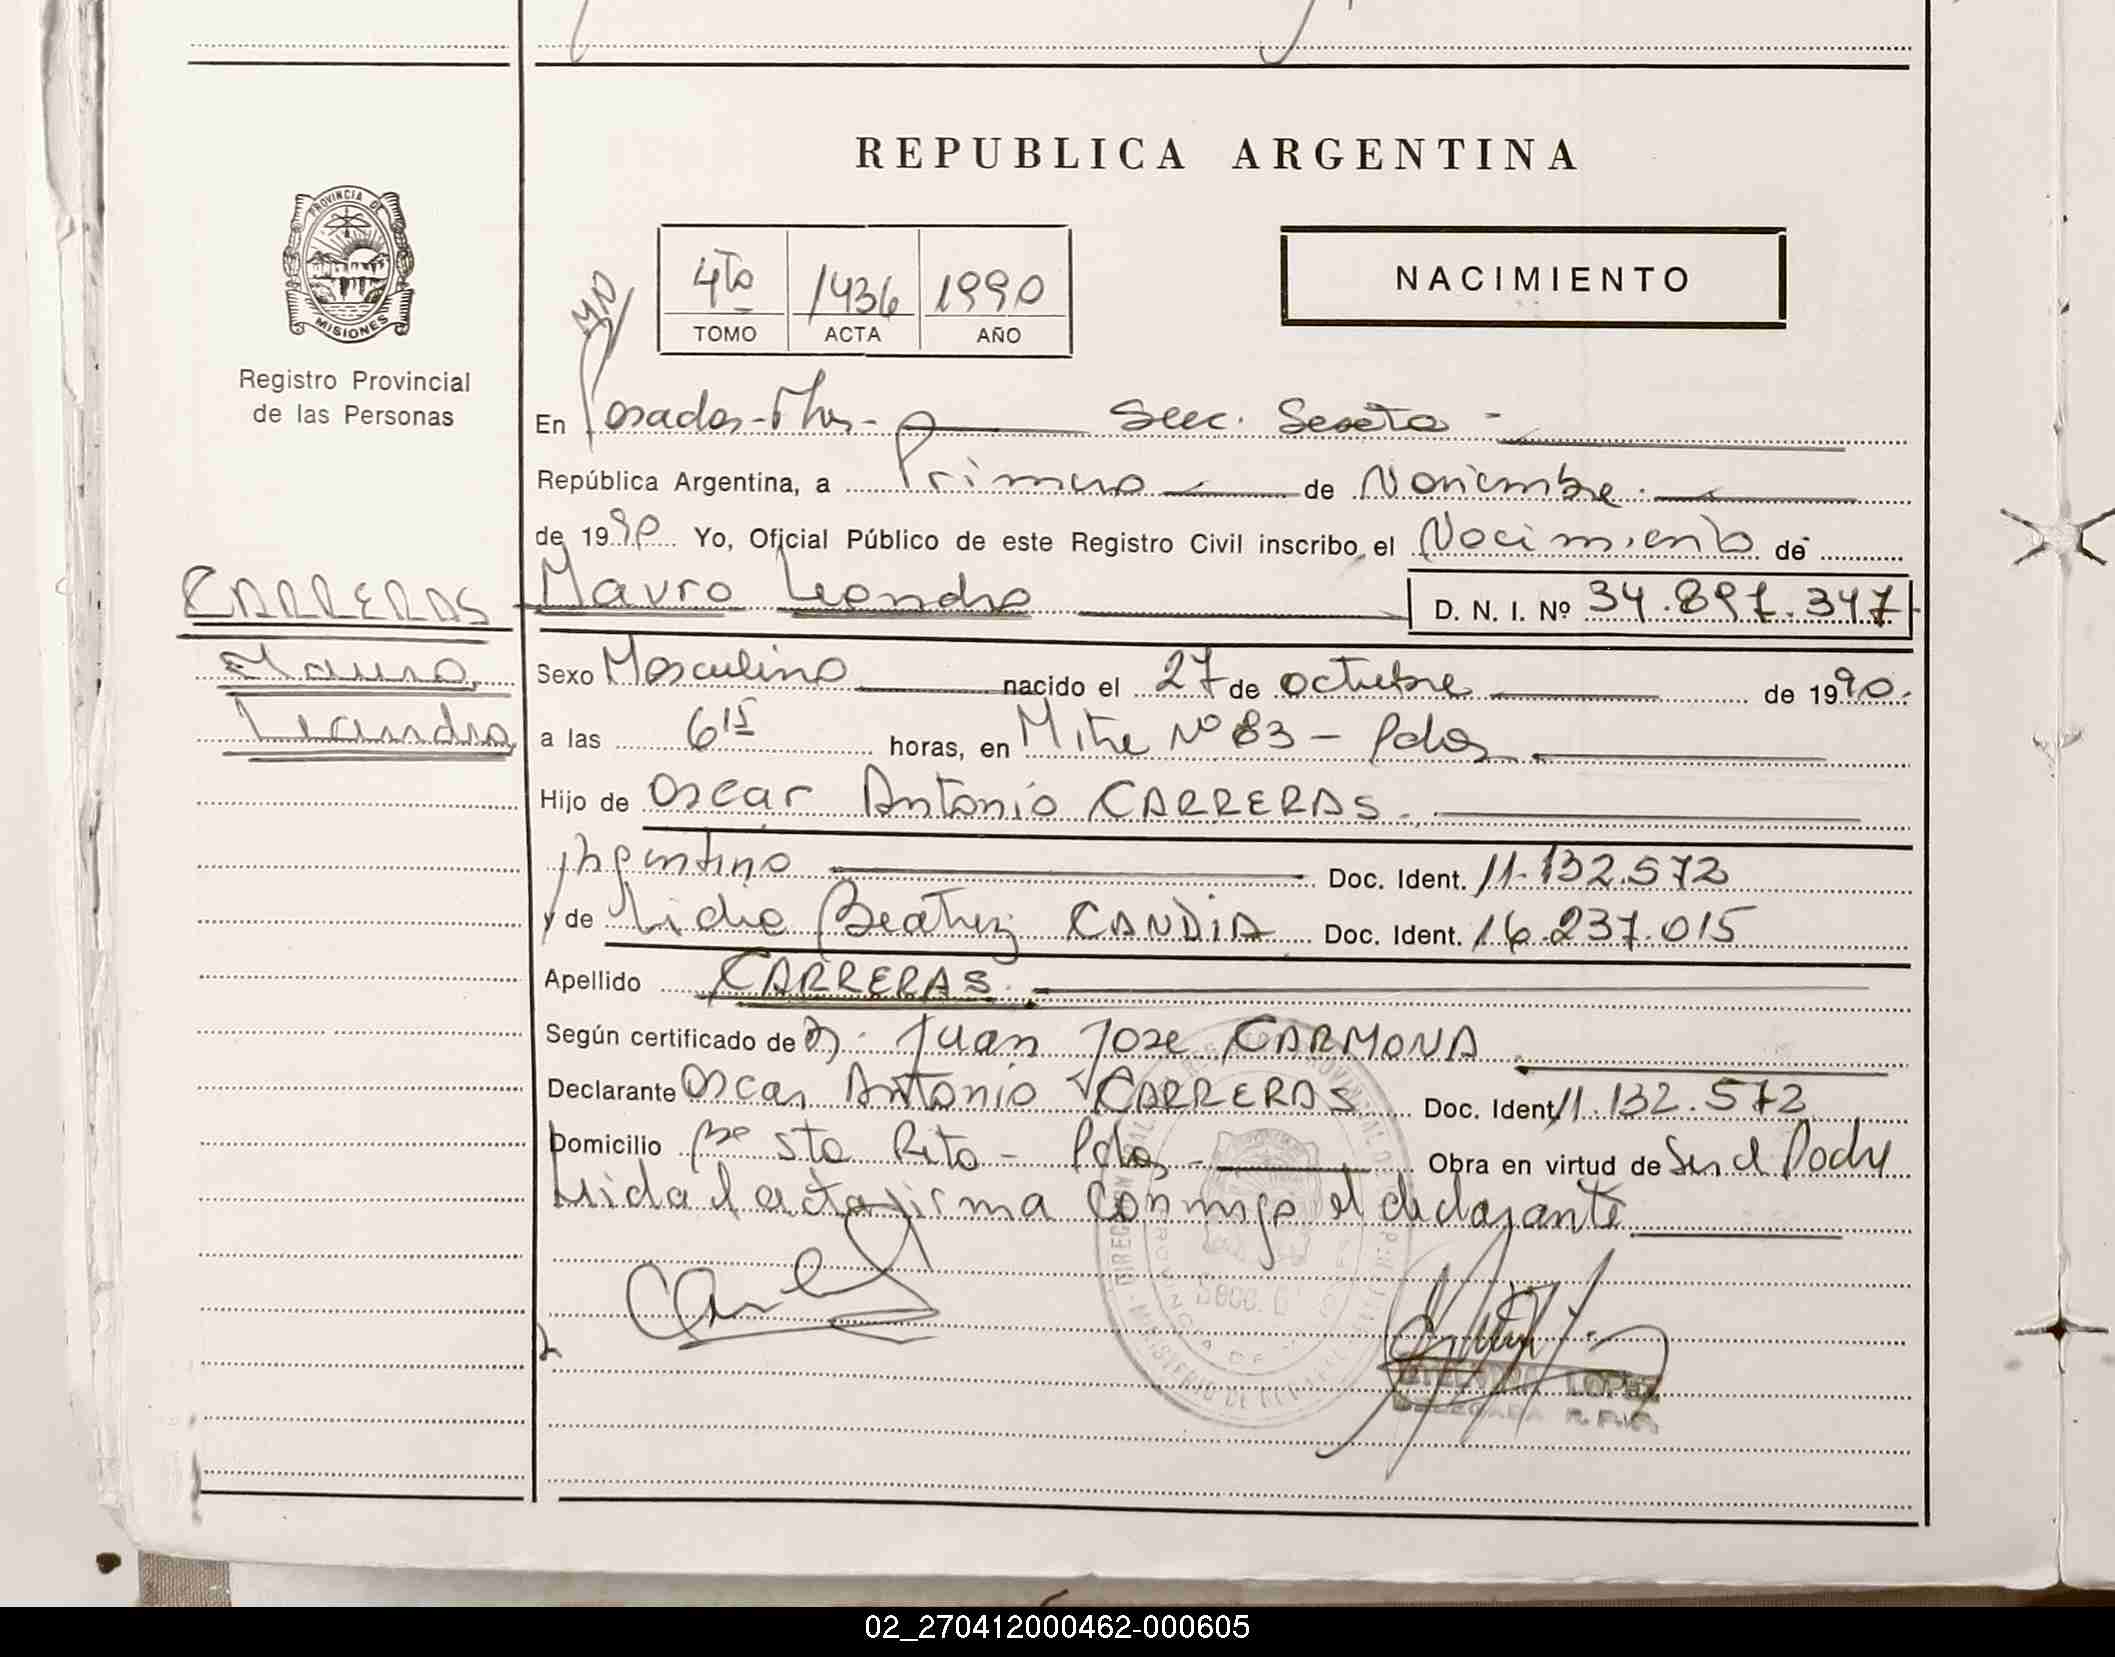 REPUBLICA ARGENTINA
PROVINCIA DE
MISIONES
Registro Provincial
de las Personas
4to 1436 1990
TOMO ACTA AÑO
NACIMIENTO
En Posadas-Mnes- Secc. Sexta -
República Argentina, a Primero de Noviembre.
de 1990 Yo, Oficial Público de este Registro Civil inscribo el Nacimiento de
CARRERAS
Mauro
Leandro
Mauro Leandro D. N. I. Nº 34.897.347
Sexo Masculino nacido el 27 de octubre de 1990.
a las 6 15 horas, en Mitre Nº 83 - Pdas
Hijo de Oscar Antonio CARRERAS.
Argentino Doc. Ident. 11.132.572
y de Lidia Beatriz CANDIA Doc. Ident. 16.237.015
Apellido CARRERAS.
Según certificado de Dr. Juan Jose CARMONA
Declarante Oscar Antonio CARRERAS Doc. Ident. 11.132.572
Domicilio Bº Sta Rita - Pdas - Obra en virtud de Ser el Padre
Leida el acta firma conmigo el declarante
LOPEZ
DELEGADA
02_270412000462-000605